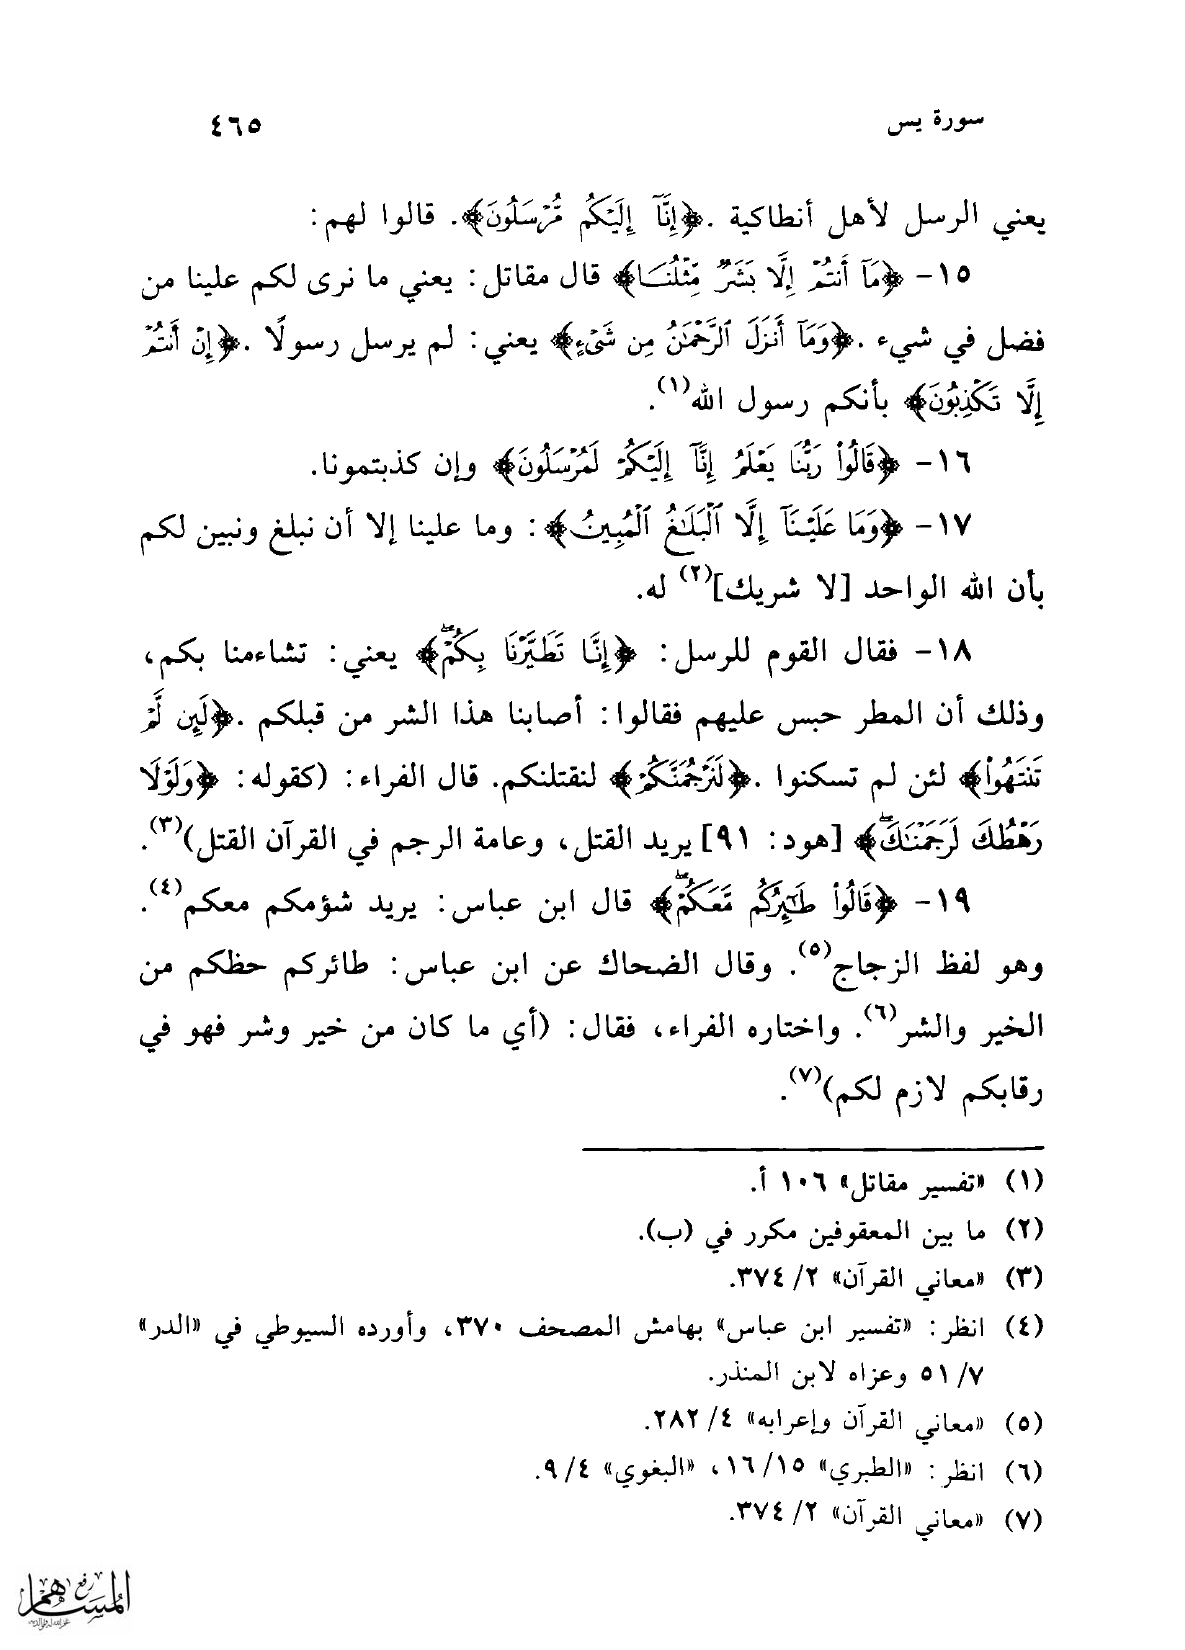 سورة يس ٤٦٥
يعني الرسل لأهل أنطاكية .﴿إِنَّآ إِلَيۡكُم مُّرۡسَلُونَ﴾. قالوا لهم:
١٥- ﴿مَآ أَنتُمۡ إِلَّا بَشَرٞ مِّثۡلُنَا﴾ قال مقاتل: يعني ما نرى لكم علينا من
فضل في شيء .﴿وَمَآ أَنزَلَ ٱلرَّحۡمَٰنُ مِن شَيۡءٍ﴾ يعني: لم يرسل رسولًا .﴿إِنۡ أَنتُمۡ
إِلَّا تَكۡذِبُونَ﴾ بأنكم رسول الله(١).
١٦- ﴿قَالُواْ رَبُّنَا يَعۡلَمُ إِنَّآ إِلَيۡكُمۡ لَمُرۡسَلُونَ﴾ وإن كذبتمونا.
١٧- ﴿وَمَا عَلَيۡنَآ إِلَّا ٱلۡبَلَٰغُ ٱلۡمُبِينُ﴾: وما علينا إلا أن نبلغ ونبين لكم
بأن الله الواحد [لا شريك](٢) له.
١٨- فقال القوم للرسل: ﴿إِنَّا تَطَيَّرۡنَا بِكُمۡۖ﴾ يعني: تشاءمنا بكم،
وذلك أن المطر حبس عليهم فقالوا: أصابنا هذا الشر من قبلكم .﴿لَئِن لَّمۡ
تَنتَهُواْ﴾ لئن لم تسكنوا .﴿لَنَرۡجُمَنَّكُمۡ﴾ لنقتلنكم. قال الفراء: (كقوله: ﴿وَلَوۡلَا
رَهۡطُكَ لَرَجَمۡنَٰكَۖ﴾ [هود: ٩١] يريد القتل، وعامة الرجم في القرآن القتل)(٣).
١٩- ﴿قَالُواْ طَٰٓئِرُكُم مَّعَكُمۡۖ﴾ قال ابن عباس: يريد شؤمكم معكم(٤).
وهو لفظ الزجاج(٥). وقال الضحاك عن ابن عباس: طائركم حظكم من
الخير والشر(٦). واختاره الفراء، فقال: (أي ما كان من خير وشر فهو في
رقابكم لازم لكم)(٧).
(١) «تفسير مقاتل» ١٠٦ أ.
(٢) ما بين المعقوفين مكرر في (ب).
(٣) «معاني القرآن» ٢/ ٣٧٤.
(٤) انظر: «تفسير ابن عباس» بهامش المصحف ٣٧٠، وأورده السيوطي في «الدر»
٧/ ٥١ وعزاه لابن المنذر.
(٥) «معاني القرآن وإعرابه» ٤/ ٢٨٢.
(٦) انظر: «الطبري» ١٥/ ١٦، «البغوي» ٤/ ٩.
(٧) «معاني القرآن» ٢/ ٣٧٤.